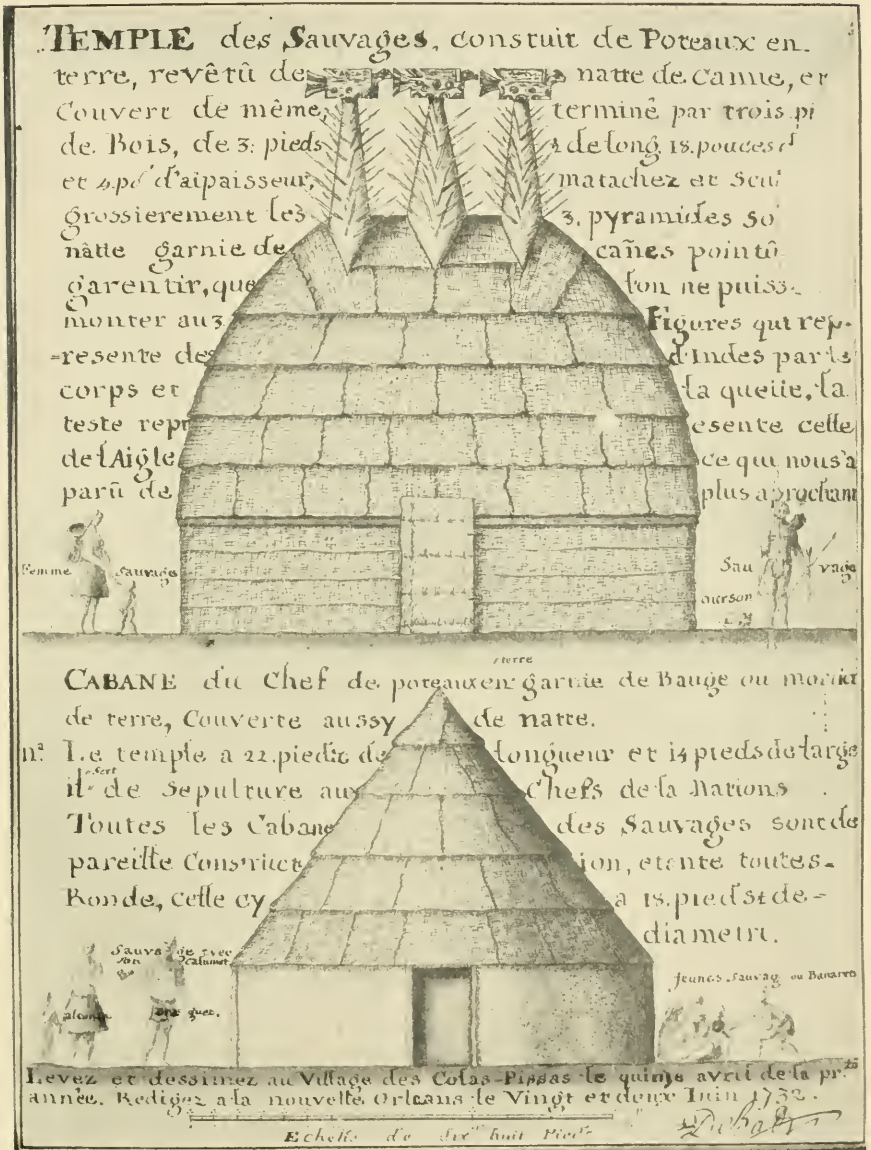 TEMPLE des Sauvages, constuit de Poteaux en
terre, revêtû de natte de Canne, et
Couvert de même, terminê par trois pi
de Bois, de 3. pieds ½ de long 18. pouces d
et 4. po d'aipaisseur, matachez et Scul
grossierement les 3. pyramides so
nâtte garnie de cañes pointû
garentir, que lon ne puiss
monter aux 3 Figures qui rep-
-resente des d'Indes par le
corps et la queüe, la
teste repr esente celle
de l'Aigle ce qui nous a
parû de plus aprochant
Femme Sauvage
Sau vage
ourson
CABANE du Chef de poteaux en terre garnie de Bauge ou mortier
de terre, Couverte aussy de natte.
na. Le temple a 22. pieds de longueur et 14 pieds de large
il sert de Sepulture aux Chefs de la Nations
Toutes les Cabane des Sauvages sont de
pareille Construct ion, etante toutes-
Ronde, celle cy a 18. pieds de-
diametre.
Sauvage avec
son Calumet
jeunes Sauvag ou Banares
Levez et dessinez au Village des Colas-Pissas le quinze avril de la pr.te
année. Redigez a la nouvelle Orleans le Vingt et deux Iuin 1732.
Echelle de dix huit Pieds
DeBatz